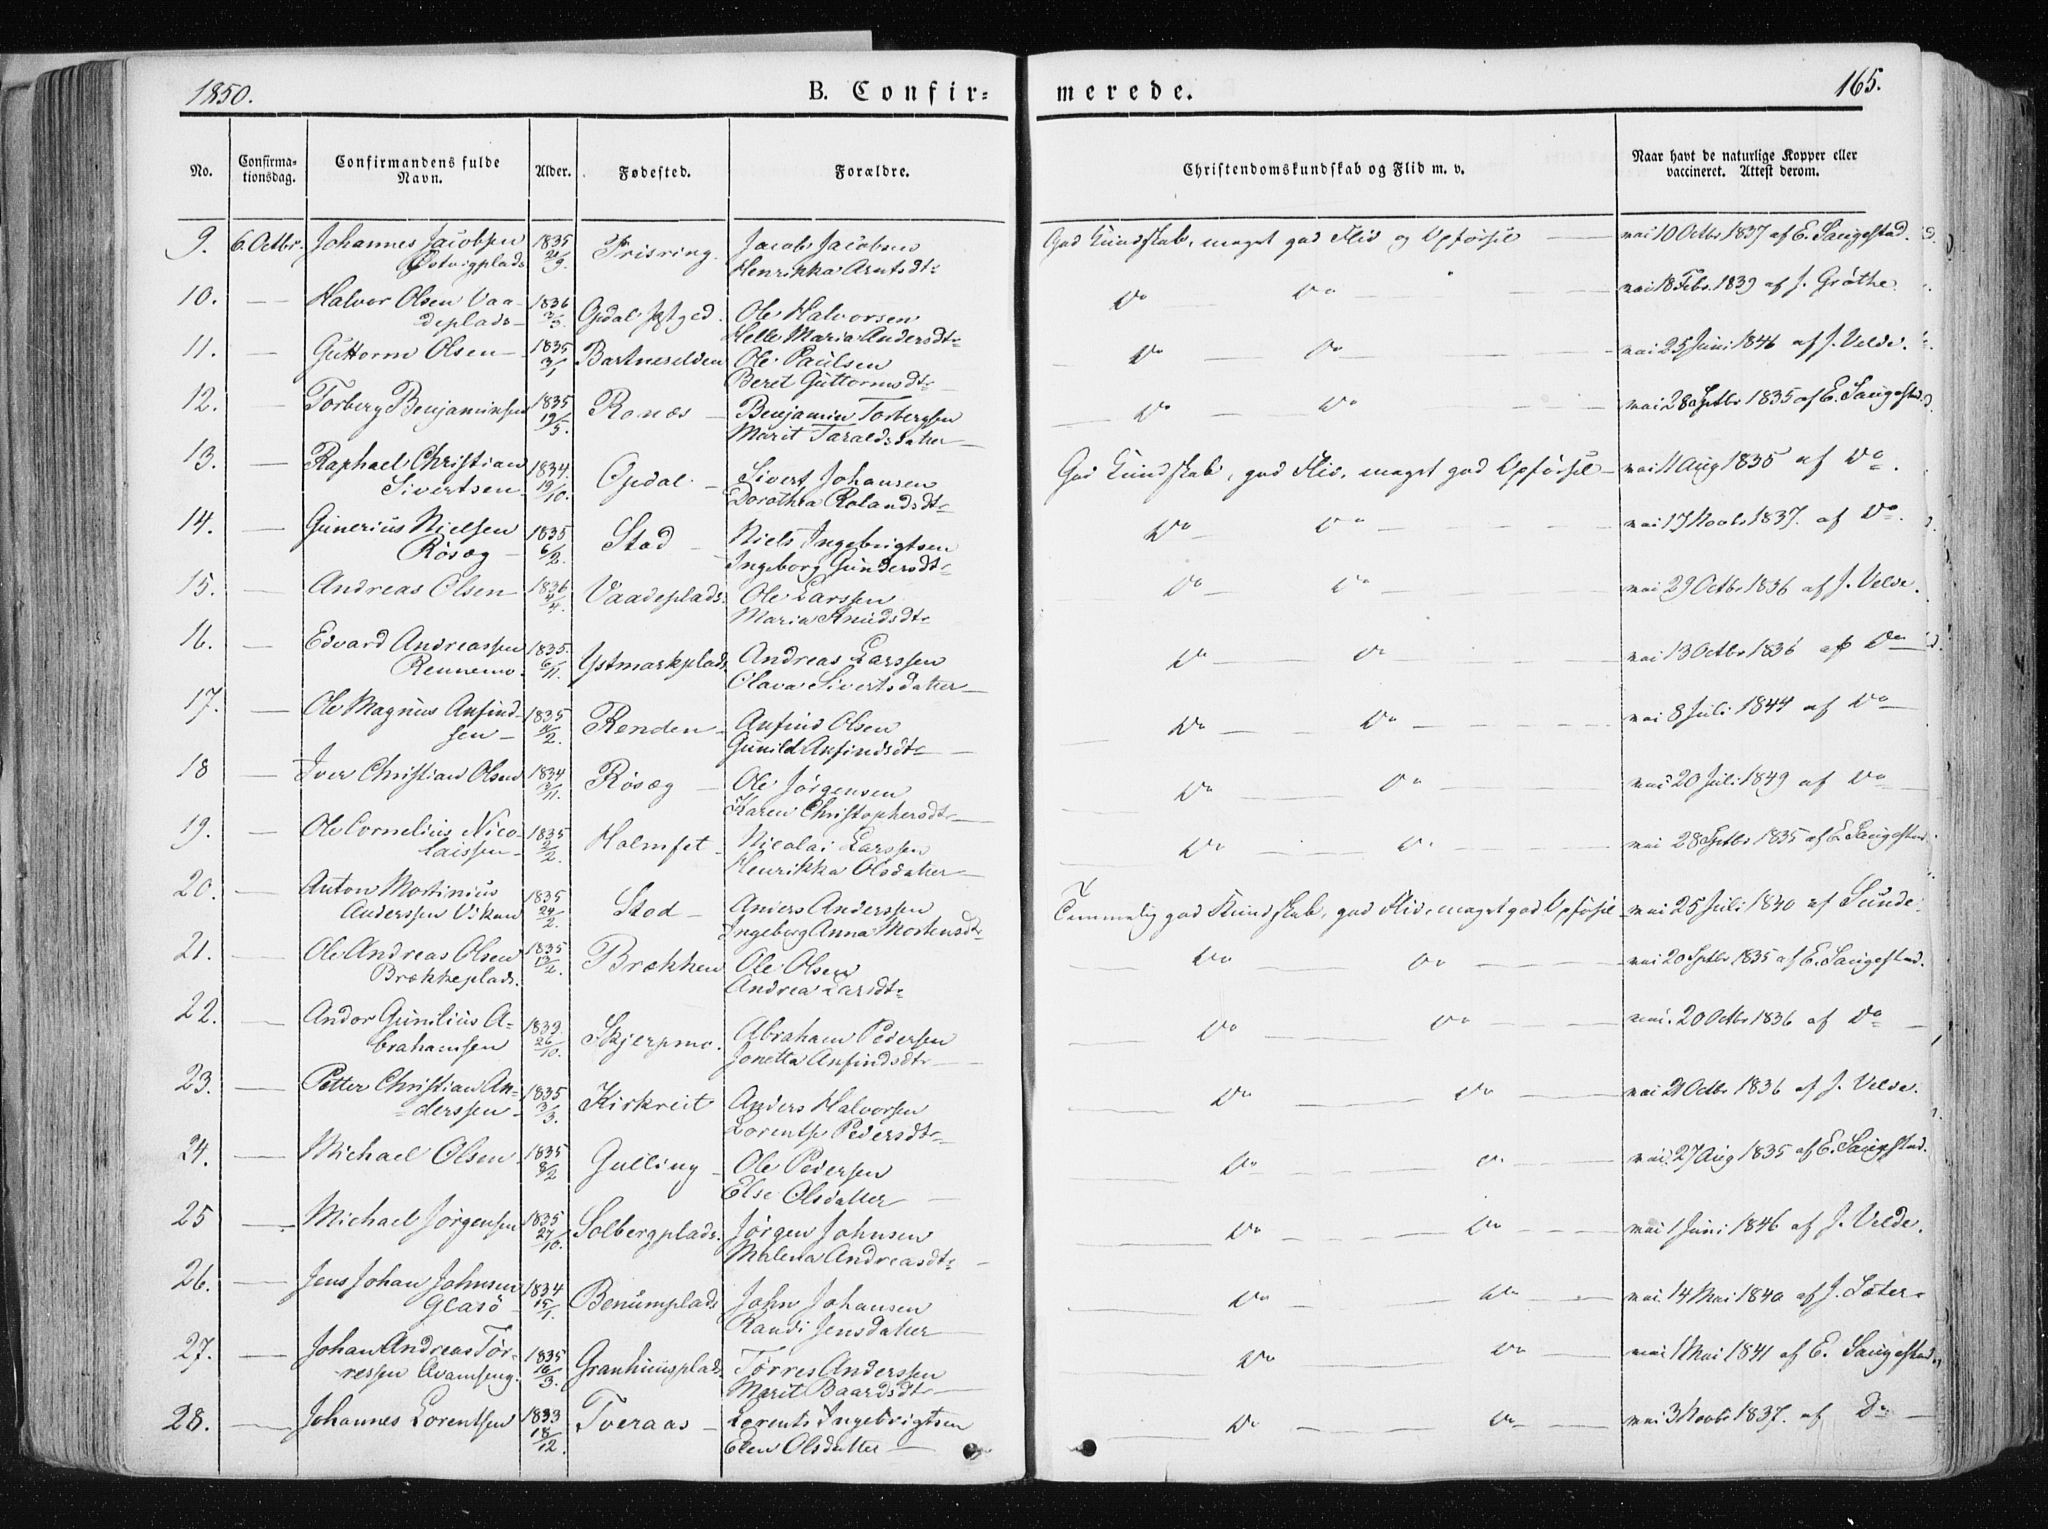 1850.
B. Confir=
merede.
165.
No.
Confirma-
tionsdag.
Confirmandens fulde
Navn.
Alder.
Fødested.
Forældre.
Christendomskundskab og Flid m. v.
Naar havt de naturlige Kopper eller
vaccineret. Attest derom.
9. 6. Octbr. Johannes Jacobsen 1835 Frisring. Jacob Jacobsen God Kundskab, meget god Flid og Opførsel — vac 10 Octbr 1837 af E. Saugestad.
Østvigplads 21/9. Henrikka Arntsdtr
10. — Halvor Olsen Vaa- 1836 Opdal Ole Halvorsen Do — Do — vac 18 Febr. 1839 af J. Grøthe.
deplads 3/3. Helle Maria Andersdtr
11. Guttorm Olsen 1835 Bartneselden Ole Paulsen Do — Do — vac 25 Juni 1846 af J. Velde.
3/1 Beret Guttormsdtr
12. — Torberg Benjaminsen 1835 Ranæs Benjamin Torbergsen Do — Do — vac 28 Septbr 1835 af E. Saugestad.
19/5. Marit Taraldsdatter
13. — Raphael Christian 1834. Opdal Sivert Johansen God Kundskab, god Flid, meget god Opførsel — vac 11 Aug 1835 af Do
Sivertsen 19/10. Dorothea Rolandsdtr
14. — Gunerius Nielsen 1835 Stod Niels Ingebrigtsen Do — Do — vac 17 Novbr 1837. af Do.
Røsæg 6/2. Ingeborg Gundersdtr
15. — Andreas Olsen 1836 Vaadeplads. Ole Larssen Do — Do — vac 29 Octbr 1836 af J. Velde.
4/4. Maria Knudsdtr
16. — Edvard Andreassen 1835. Ystmarkplads. Andreas Larssen Do — Do — vac 13 Octbr 1836 af Do
Rennemo. 6/11. Olava Sivertsdatter
17. — Ole Magnus Anfind- 1835 Renden Anfind Olsen Do — Do — vac 8 Juli 1844 af Do
sen Gunild Anfindsdtr
18 — Iver Christian Olsen 1834 Røsæg Ole Jørgensen Do — Do — vac 20 Juli 1849 af Do
3/11. Karen Christophersdtr
19. — Ole Cornelius Nico- 1835 Holmset Nicolai Larssen Do — Do — vac 28 Septbr 1835 af E. Saugestad.
laissen 2/2. Henrikka Olsdatter
20. — Anton Mortinius 1835 Stod Anders Anderssen Temmelig god Kundskab, god Flid, meget god Opførsel vac 25 Juli 1840 af Sunde
Anderssen Vikan 24/2. Ingeborg Anna Mortensdtr
21. — Ole Andreas Olsen 1835 Brækken Ole Olsen Do — Do — vac 20 Septbr 1835 af E. Saugestad.
Brækkeplads. 13/2. Andrea Larsdtr
22. — Andor Gunilius A- Skjerpmo. Abraham Pedersen Do — Do — vac. 20 Octbr 1836 af Do
brahamsen 26/10. Jonetta Anfindsdtr
23. — Petter Christian An- 1835 Kirkreit Anders Halvorsen Do — Do — vac 21 Octbr 1836 af J. Velde.
derssen 3/3. Lorentse Pedersdtr
24. — Michael Olsen 1835 Gulling Ole Pedersen Do — Do — vac. 27 Aug 1835 af E. Saugestad.
8/2 Else Olsdatter
25 — Michael Jørgensen 1835 Solbergplads. Jørgen Johnsen Do — Do — vac 1 Juni 1846 af J. Velde.
27/10. Malena Andreasdtr
26. — Jens Johan Johnsen 1834 Benumplads John Johansen Do — Do — vac. 14 Mai 1840 af J. Sæter
Glasø 15/1. Randi Jensdatter
27. — Johan Andreas Tør- 1835 Granhuusplads. Tørres Anderssen Do — Do — vac 1 Mai 1841 af E. Saugestad
ressen Avamseng. 16/3. Marit Baardsdtr
28. — Johannes Lorentsen 1833 Tveraas Lorents Ingebrigtsen Do — Do — vac 3 Novbr 1837. af Do
18/12. Elen Olsdatter